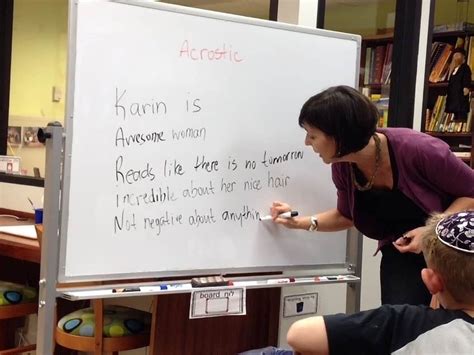 Acrostic
Karin is
Awesome woman
Reads like there is no tomorrow
Incredible about her nice hair
Not negative about anythin
board no